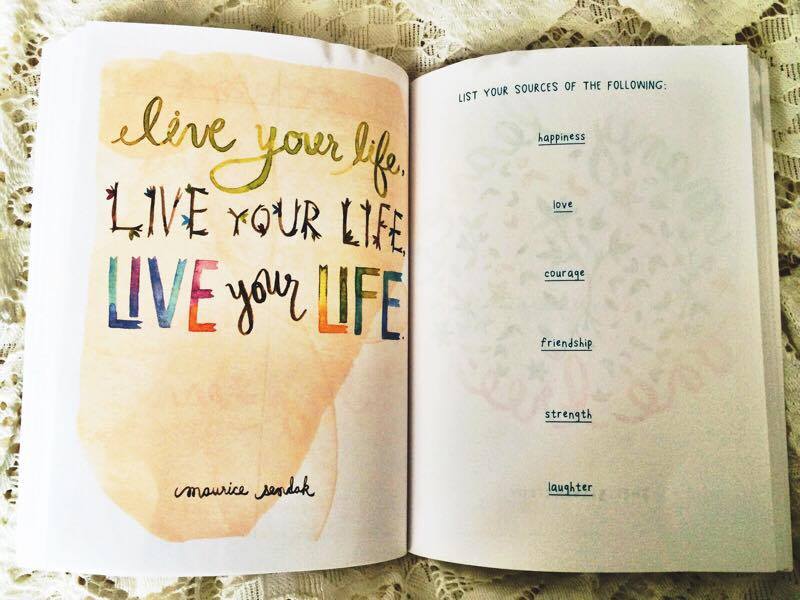 live your life.
LIVE YOUR LIFE,
LIVE your LIFE.
maurice sendak
LIST YOUR SOURCES OF THE FOLLOWING:
happiness
love
courage
friendship
strength
laughter